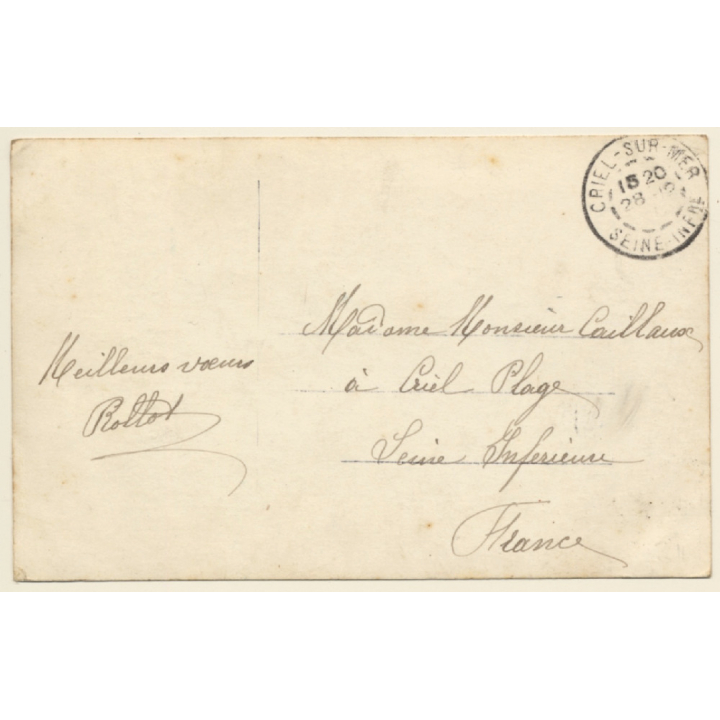 CRIEL-SUR-MER
15 20
28
SEINE-INFRE
Meilleurs vœux
Madame Monsieur Caillaux
à Criel Plage
Seine Inférieure
France